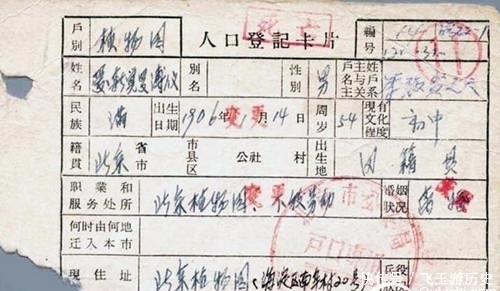 死亡
户别 植物园 人口登記卡片 編号
姓名 爱新觉罗溥仪 別名 性別 男 户主姓名与户主关系
民族 满 出生日期 1906年1月14日 变更 周岁 54 現有文化程度 初中
籍貫 北京 省市 市县区 公社 村 出生地 同籍貫
职業和服务处所 北京植物园、 变更 婚姻状况 离婚
何时由何地迁入本市 市 户口
現住址 北京植物园(海淀区南辛村20号) 兵役
飞玉游历史